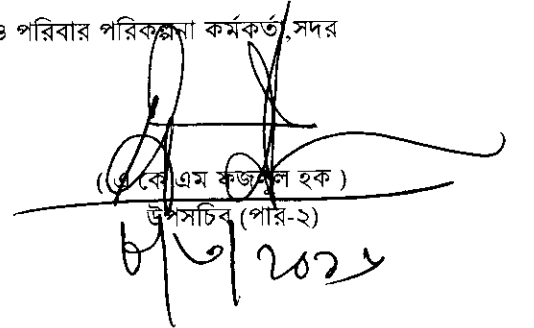 ও পরিবার পরিকল্পনা কর্মকর্তা,সদর
(এ কে এম ফজলুল হক )
উপসচিব (পার-২)